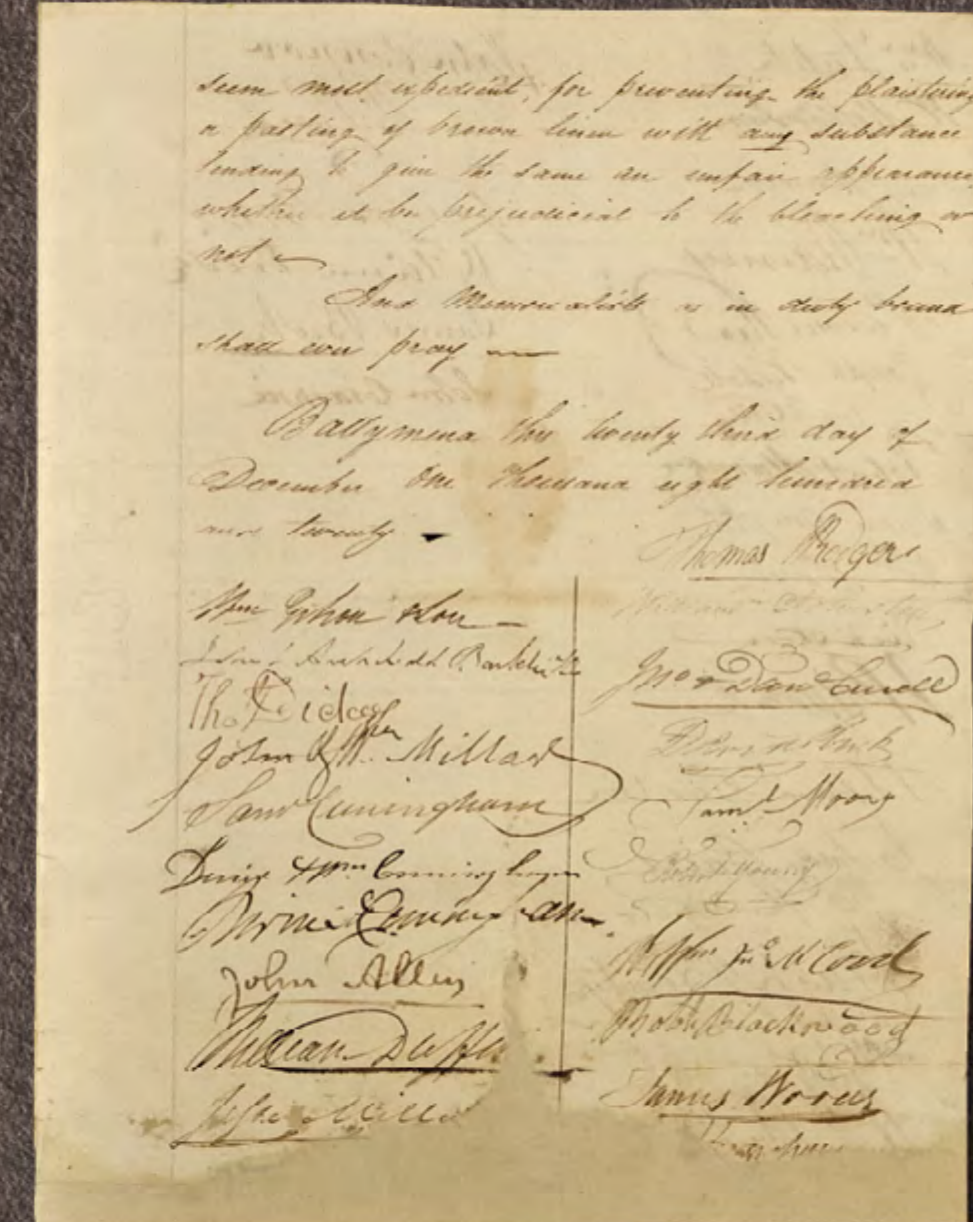 seem most expedient, for preventing the plaistering
or pasting of brown linen with any substance
tending to give the same an unfair appearance
whether it be prejudicial to the bleaching or
not
And Memorialists as in duty bound
shall ever pray
Ballymena this twenty third day of
December One thousand eight hundred
and twenty
Wm Gihon & Son
Tho Dickey
John & Wm Millar
Saml Cuningham
David & Wm Cunningham
Cunningham
John Allen
William Duffin
Miller
Thomas
William
Jno & Dan Cur
David
Saml Moore
Robt Young
Wm Jno McCord
Robt Blackwood
James Woods